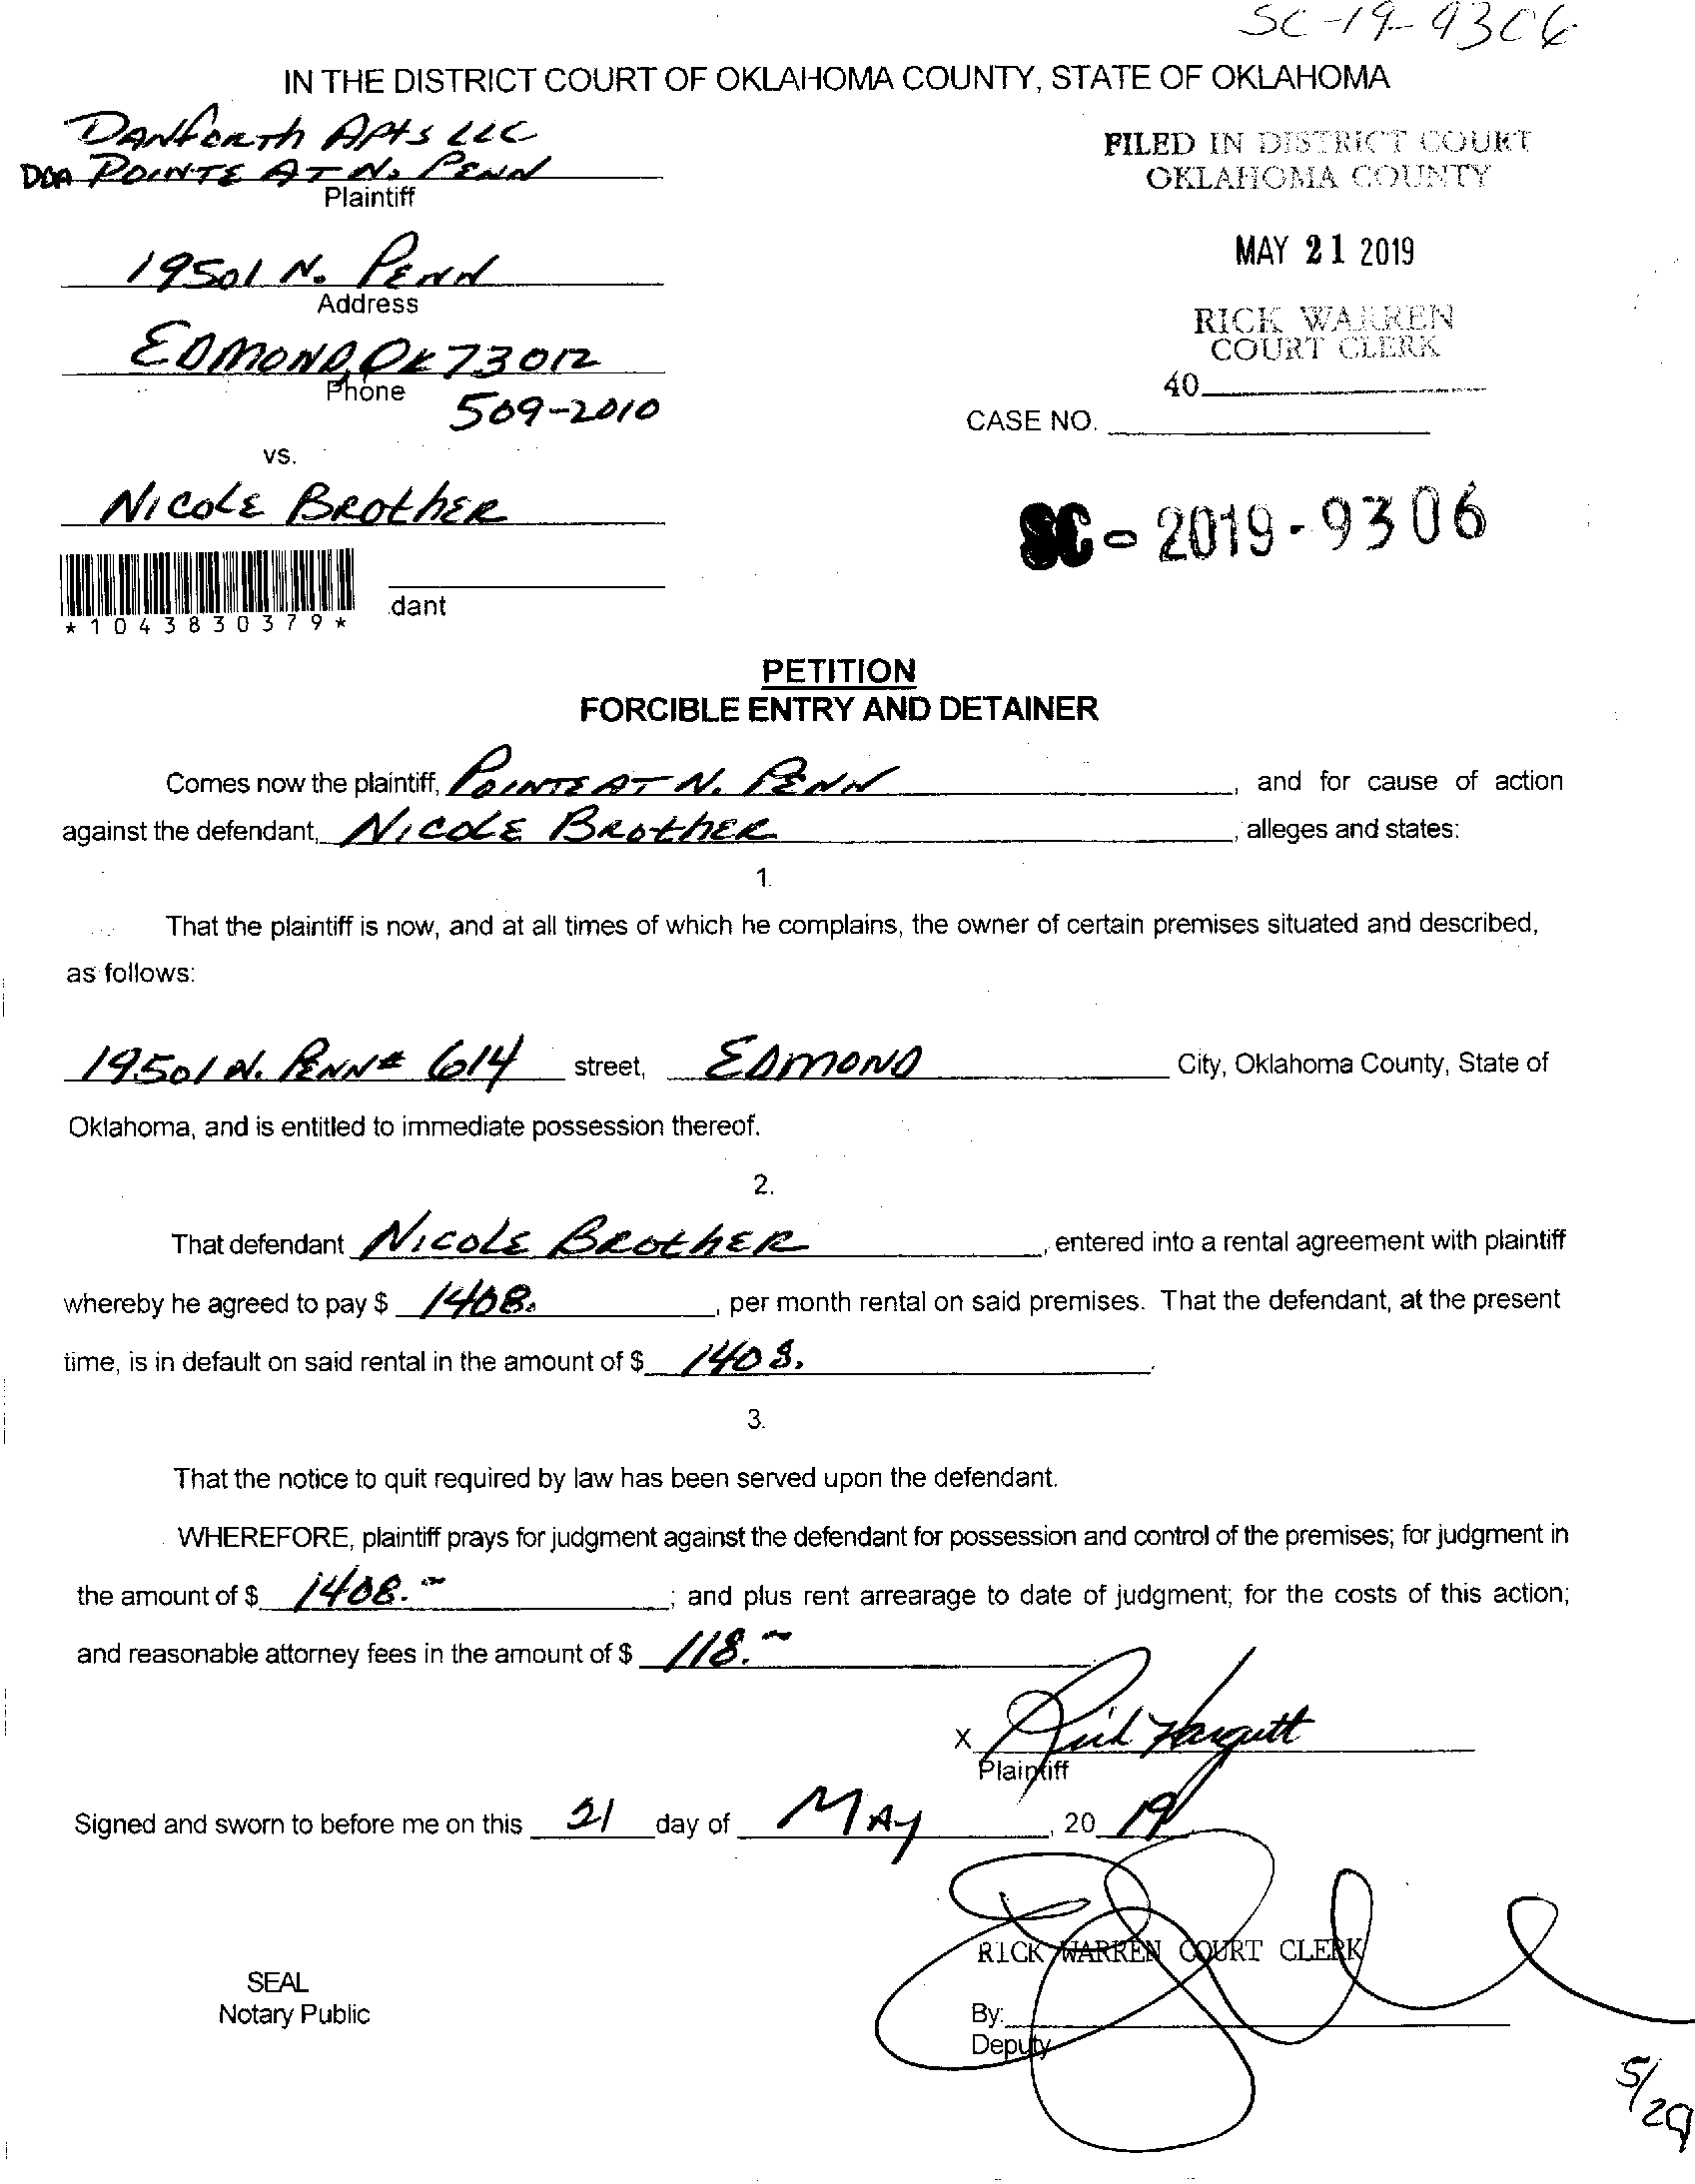 SC-19-9306
IN THE DISTRICT COURT OF OKLAHOMA COUNTY, STATE OF OKLAHOMA
DANFORTH APTS LLC
DBA POINTE AT N. PENN
Plaintiff
FILED IN DISTRICT COURT
OKLAHOMA COUNTY
19501 N. PENN
Address
MAY 21 2019
EDMOND, OK 73012
Phone
509-2010
RICK WARREN
COURT CLERK
40
CASE NO.
vs.
NICOLE BROTHER
SC - 2019 - 9306
*1043830379*
dant
PETITION
FORCIBLE ENTRY AND DETAINER
Comes now the plaintiff, POINTE AT N. PENN, and for cause of action
against the defendant, NICOLE BROTHER, alleges and states:
1.
That the plaintiff is now, and at all times of which he complains, the owner of certain premises situated and described,
as follows:
19501 N. PENN # 614 street, EDMOND City, Oklahoma County, State of
Oklahoma, and is entitled to immediate possession thereof.
2.
That defendant NICOLE BROTHER, entered into a rental agreement with plaintiff
whereby he agreed to pay $ 1408., per month rental on said premises. That the defendant, at the present
time, is in default on said rental in the amount of $ 1408.
3.
That the notice to quit required by law has been served upon the defendant.
WHEREFORE, plaintiff prays for judgment against the defendant for possession and control of the premises; for judgment in
the amount of $ 1408.-; and plus rent arrearage to date of judgment; for the costs of this action;
and reasonable attorney fees in the amount of $ 118.-
X Rick Hargett
Plaintiff
Signed and sworn to before me on this 21 day of MAY, 20 19
RICK WARREN COURT CLERK
SEAL
Notary Public
By:
Deputy
5/29